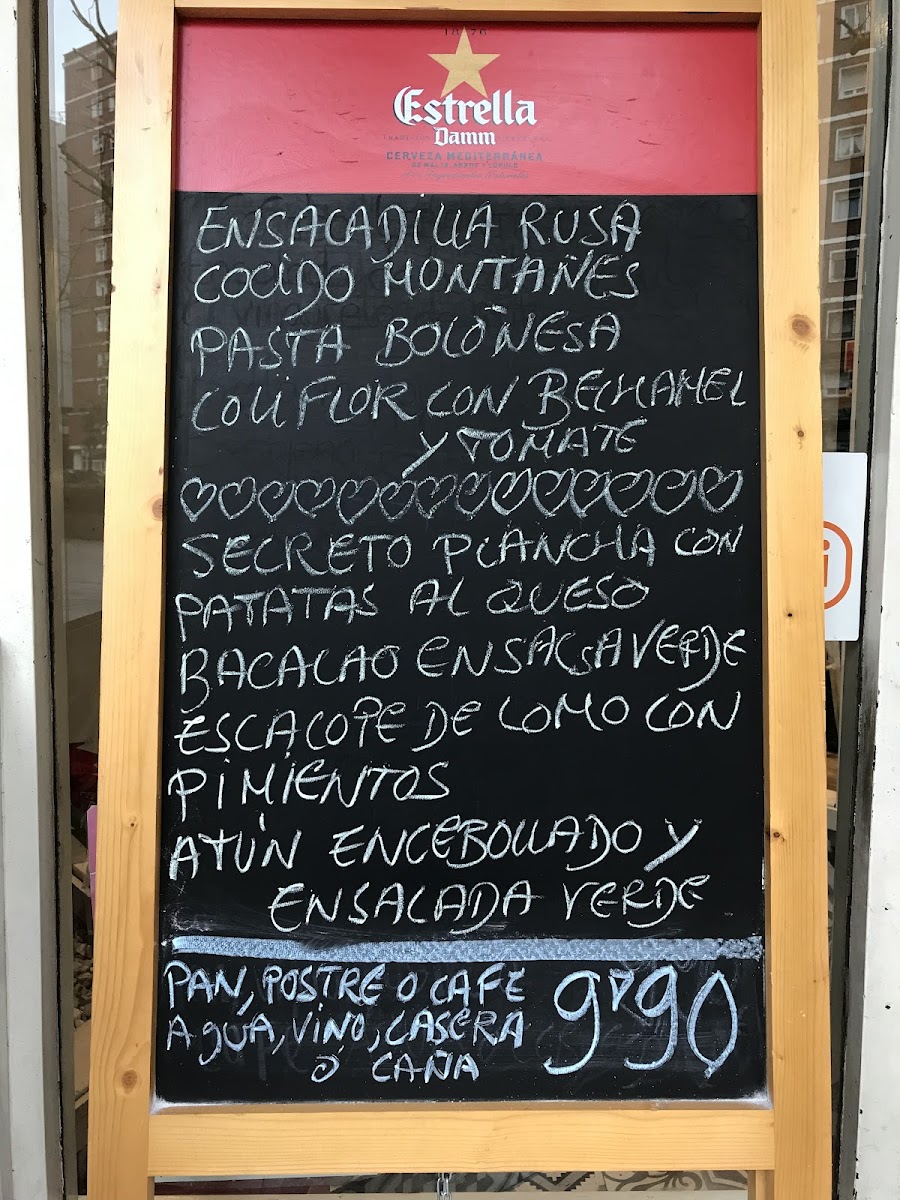 1876
Estrella
Damm
CERVEZA MEDITERRÁNEA
DE MALTA, ARROZ Y LÚPULO
ENSALADILLA RUSA
COCIDO MONTAÑES
PASTA BOLOÑESA
COLIFLOR CON BECHAMEL
Y TOMATE
SECRETO PLANCHA CON
PATATAS AL QUESO
BACALAO EN SALSA VERDE
ESCALOPE DE LOMO CON
PIMIENTOS
ATÚN ENCEBOLLADO Y
ENSALADA VERDE
PAN, POSTRE O CAFE 9'90
AGUA, VINO, CASERA
Ó CAÑA